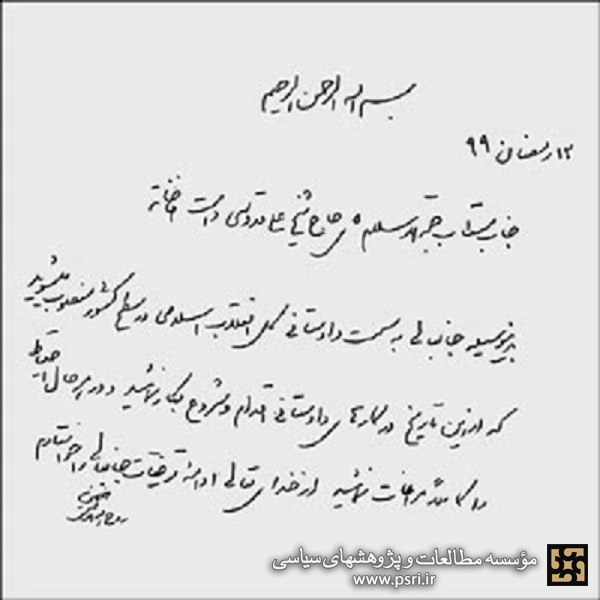 بسم الله الرحمن الرحیم
۱۲ رمضان ۹۹
جناب مستطاب حجةالاسلام آقای حاج شیخ علی قدوسی دامت افاضاته
بدینوسیله جنابعالی به سمت دادستانی کل انقلاب اسلامی در سطح کشور منصوب میشوید
که از این تاریخ در کارهای دادستانی اقدام و شروع بکار نمائید و در هر حال احتیاط
را کاملاً مراعات نمائید از خدای تعالی ادامه توفیقات جنابعالی را خواستارم
روح الله الموسوی الخمینی
مؤسسه مطالعات و پژوهشهای سیاسی
www.psri.ir